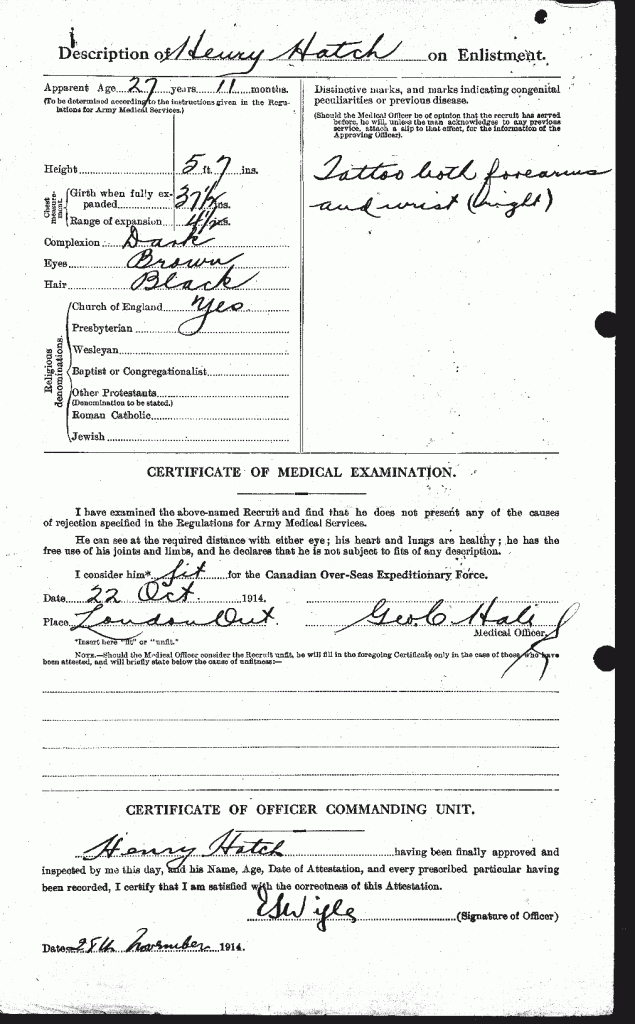 Description of Henry Hatch on Enlistment.
Apparent Age 27 years 11 months.
(To be determined according to the instructions given in the Regu-
lations for Army Medical Services.)
Height 5 ft. 7 ins.
Chest measure-
ment.
Girth when fully ex-
panded 37½ ins.
Range of expansion 4½ ins.
Complexion Dark
Eyes Brown
Hair Black
Religious
denominations.
Church of England Yes
Presbyterian
Wesleyan
Baptist or Congregationalist
Other Protestants
(Denomination to be stated.)
Roman Catholic
Jewish
Distinctive marks, and marks indicating congenital
peculiarities or previous disease.
(Should the Medical Officer be of opinion that the recruit has served
before, he will, unless the man acknowledges to any previous
service, attach a slip to that effect, for the information of the
Approving Officer).
Tattoo both forearms
and wrist (right)
CERTIFICATE OF MEDICAL EXAMINATION.
I have examined the above-named Recruit and find that he does not present any of the causes
of rejection specified in the Regulations for Army Medical Services.
He can see at the required distance with either eye; his heart and lungs are healthy; he has the
free use of his joints and limbs, and he declares that he is not subject to fits of any description.
I consider him* fit for the Canadian Over-Seas Expeditionary Force.
Date 22 Oct 1914.
Place London Ont Geo C Hale
Medical Officer.
*Insert here "fit" or "unfit."
NOTE.—Should the Medical Officer consider the Recruit unfit, he will fill in the foregoing Certificate only in the case of those who have
been attested, and will briefly state below the cause of unfitness:—
CERTIFICATE OF OFFICER COMMANDING UNIT.
Henry Hatch having been finally approved and
inspected by me this day, and his Name, Age, Date of Attestation, and every prescribed particular having
been recorded, I certify that I am satisfied with the correctness of this Attestation.
ESWigle (Signature of Officer)
Date 28th November 1914.